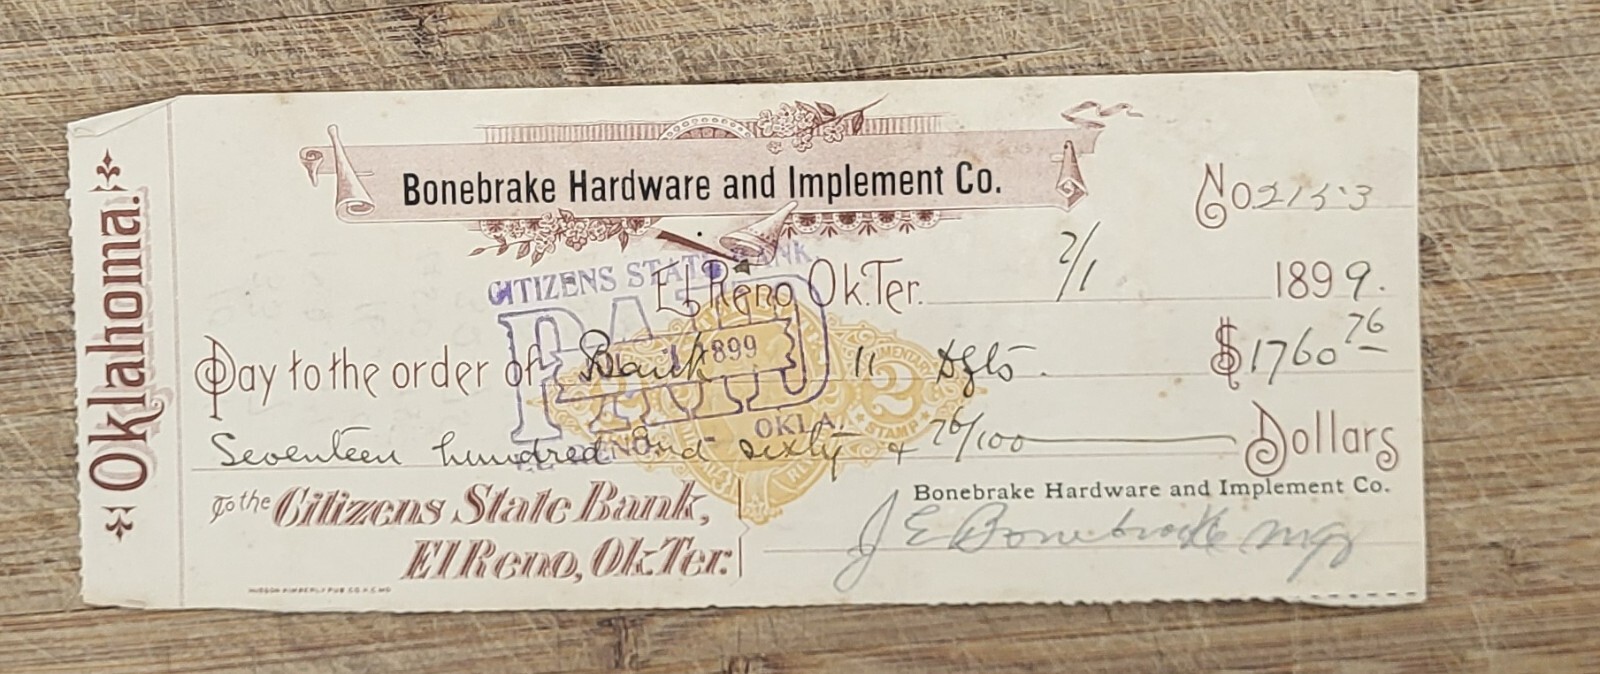 Oklahoma.
Bonebrake Hardware and Implement Co.
No 2153
CITIZENS STATE BANK
El Reno Ok.Ter. 2/1 1899.
PAID
1899
Pay to the order of Bank 11 Dfts. $1760 76
OKLA.
Seventeen hundred and sixty & 76/100 Dollars
2
STAMP
To the Citizens State Bank,
El Reno, Ok.Ter.
Bonebrake Hardware and Implement Co.
J E Bonebrake Mgr
HUDSON KIMBERLY PUB CO. K.C. MO